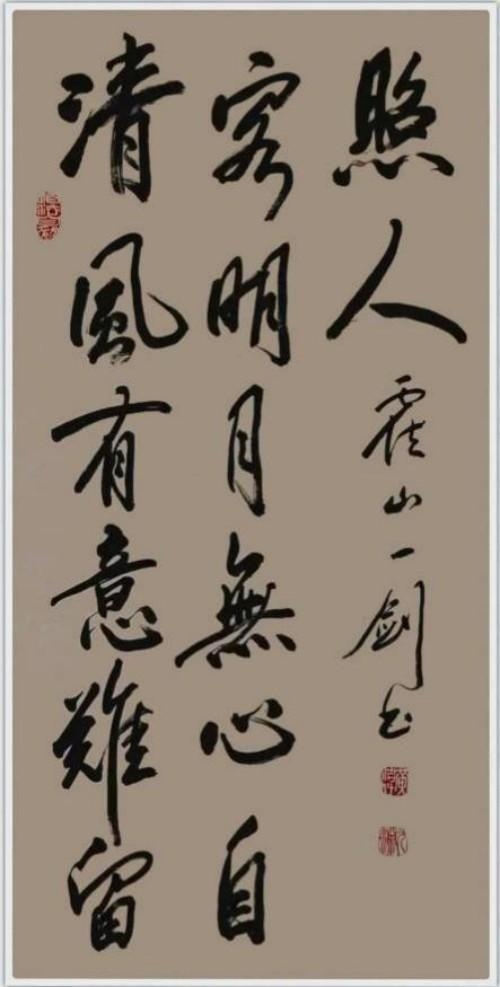 清風有意難留
客明月無心自
照人
霍山一劍书